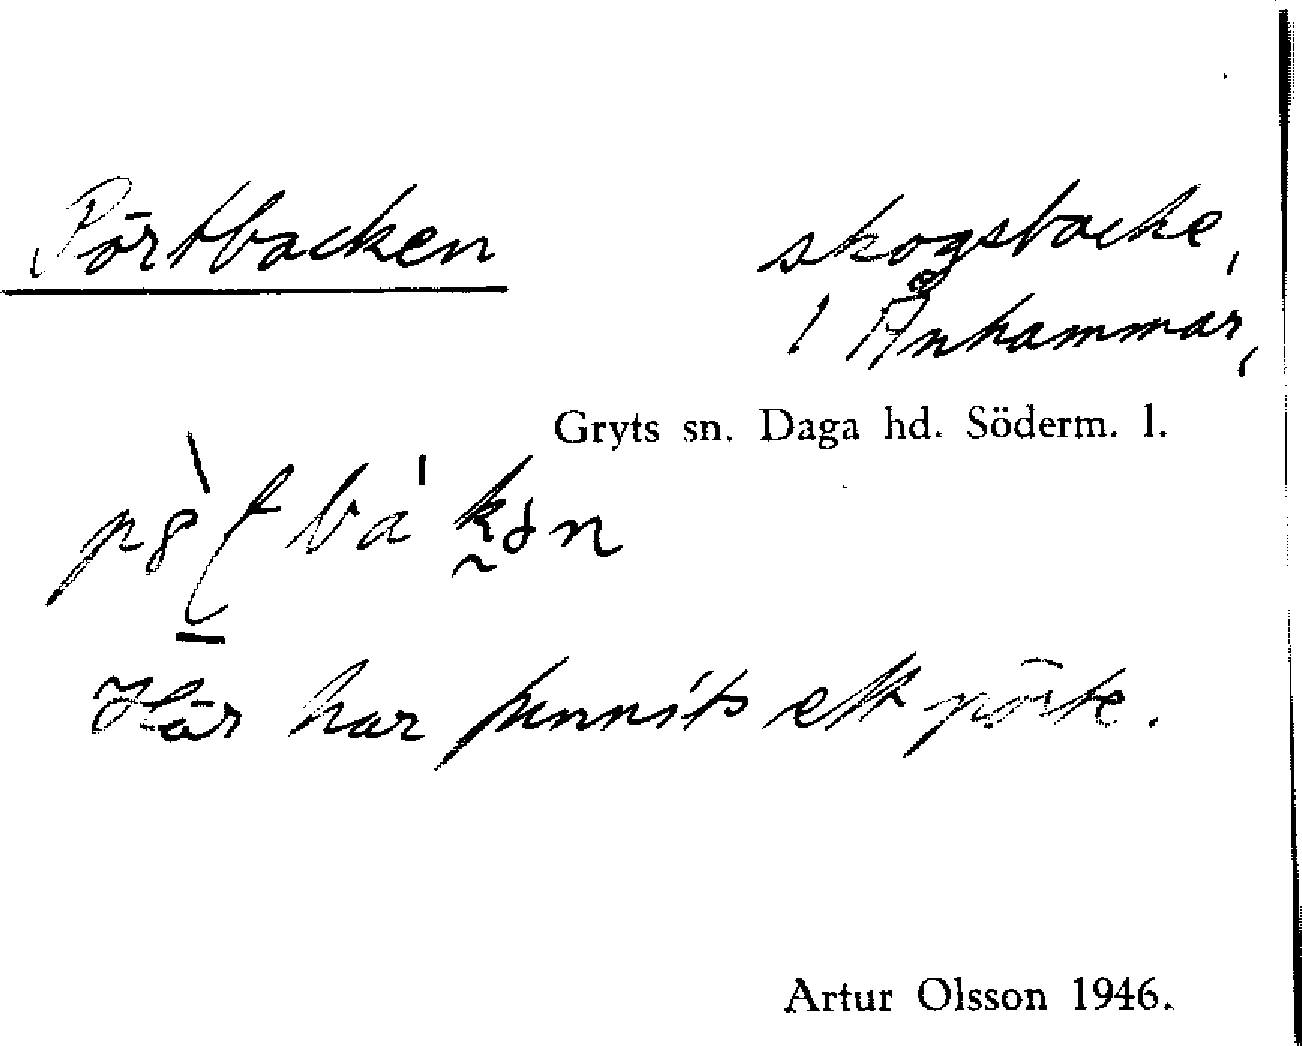 Pörtbacken
skogsbacke,
i Ånhammar,
Gryts sn. Daga hd. Söderm. l.
Här har funnits ett pörte.
Artur Olsson 1946.